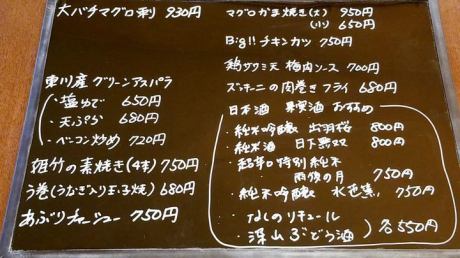 大バチマグロ刺 930円
東川産グリーンアスパラ
・塩ゆで 650円
・天ぷら 680円
・ベーコン炒め 720円
姫竹の素焼き(4本)750円
う巻(うなぎ入り玉子焼)680円
あぶりチャーシュー 750円
マグロかま焼き(大) 950円
(小) 650円
Big!! チキンカツ 750円
鶏ササミ天 梅肉ソース 700円
ズッキーニの肉巻きフライ 680円
日本酒 果実酒 おすすめ
・純米吟醸 出羽桜 800円
・純米酒 日下無双 800円
・超辛口特別純米
雨後の月 750円
・純米吟醸 水芭蕉 750円
・なしのリキュール
・深山ぶどう酒 ) 各550円